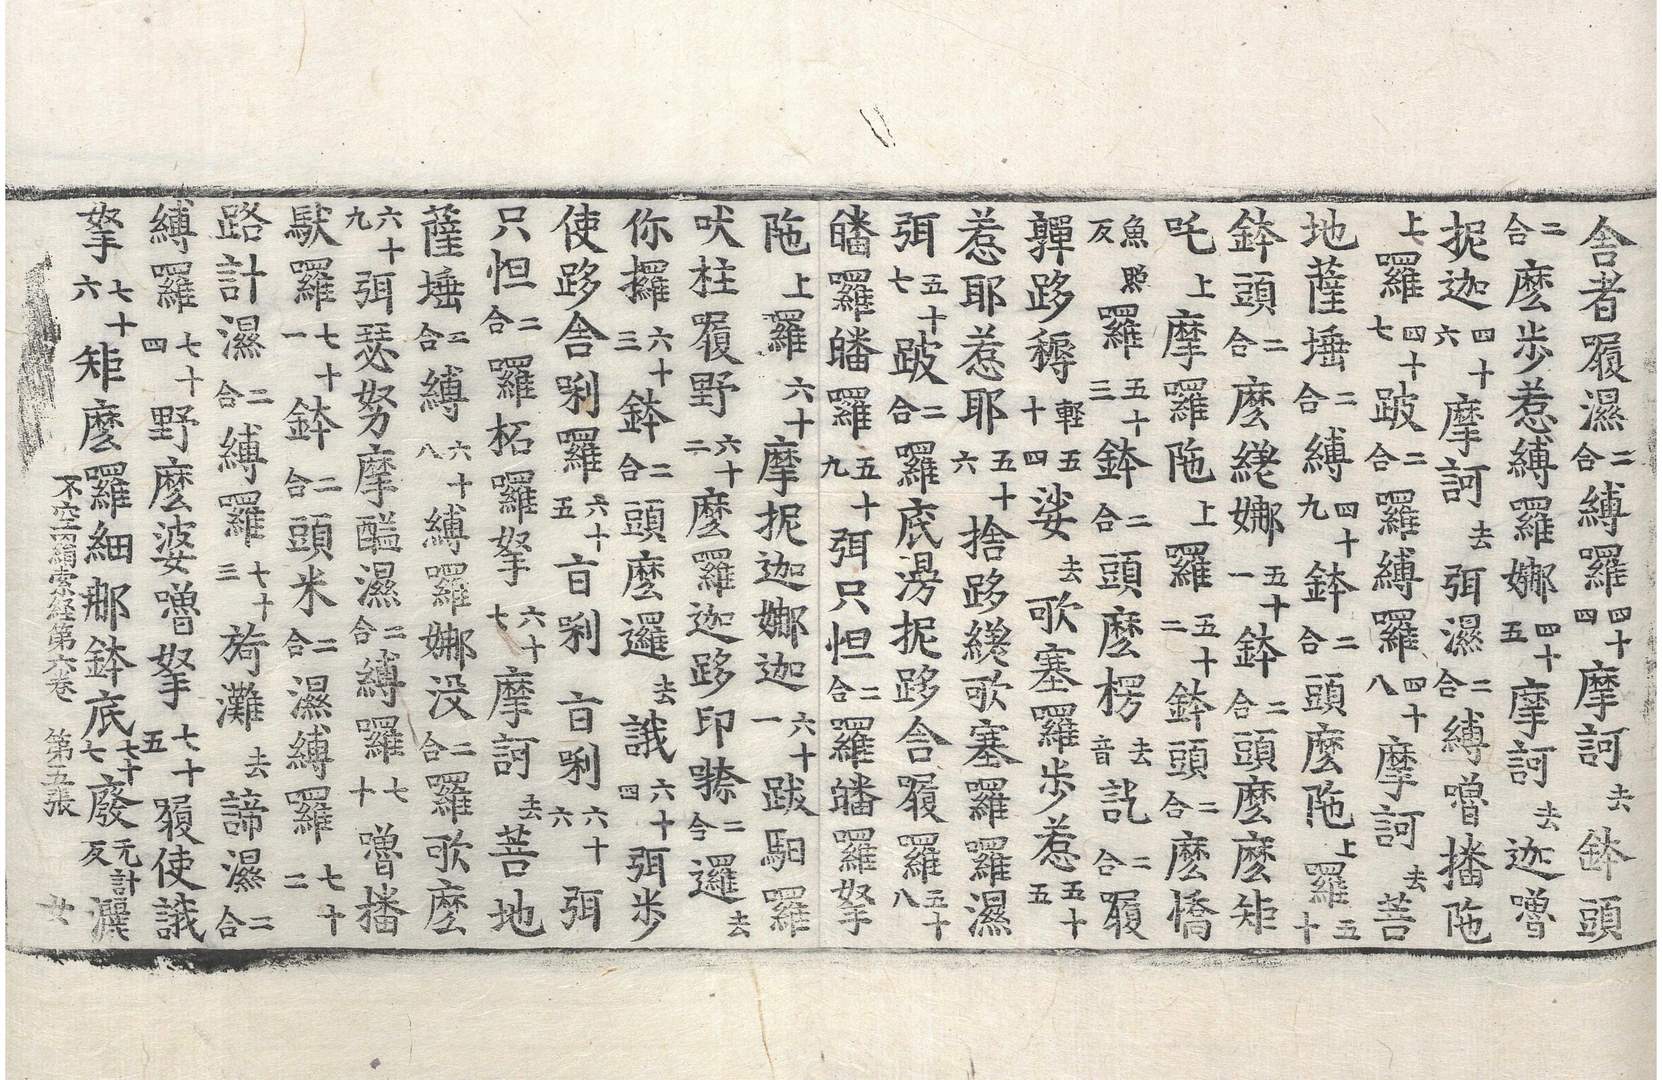 舎者履濕二合縛羅四十四摩訶去鉢頭
二合麽步惹縛羅娜四十五摩訶去迦嚕
抳迦四十六摩訶去弭濕二合縛嚕播陁
上羅四十七跛二合羅縛羅四十八摩訶去菩
地薩埵二合縛四十九鉢二合頭麽陁上羅五十
鉢頭二合麽縒娜五十一鉢二合頭麽麽矩
吒上摩羅陁上羅五十二鉢頭二合麽憍
魚照反羅五十三鉢二合頭麽楞去音訖二合履
亸跢耨輕五十四娑去歌塞羅步惹五十五
惹耶惹耶五十六捨跢縒歌塞羅羅濕
弭五十七跛二合羅底湯抳跢舍履羅五十八
皤羅皤羅五十九弭只怛二合羅皤羅拏
陁上羅六十摩抳迦娜迦六十一跋馹羅
吠柱履野六十二麽羅迦跢印捺二合邏去
你攞六十三鉢二合頭麽邏去誐六十四弭步
使跢舎唎羅六十五亯唎亯唎六十六弭
只怛二合羅柘囉拏六十七摩訶去菩地
薩埵二合縛六十八縛羅娜没二合羅歌麽
六十九弭瑟努摩醯濕二合縛羅七十嚕播
馱羅七十一鉢二合頭米二合濕縛羅七十二
路計濕二合縛羅七十三旖灘去諦濕二合
縛羅七十四野麽婆嚕拏七十五履使誐
拏七十六矩麽羅細那鉢底七十七廢无計反瀷
不空羂索経第六卷 第五張 女